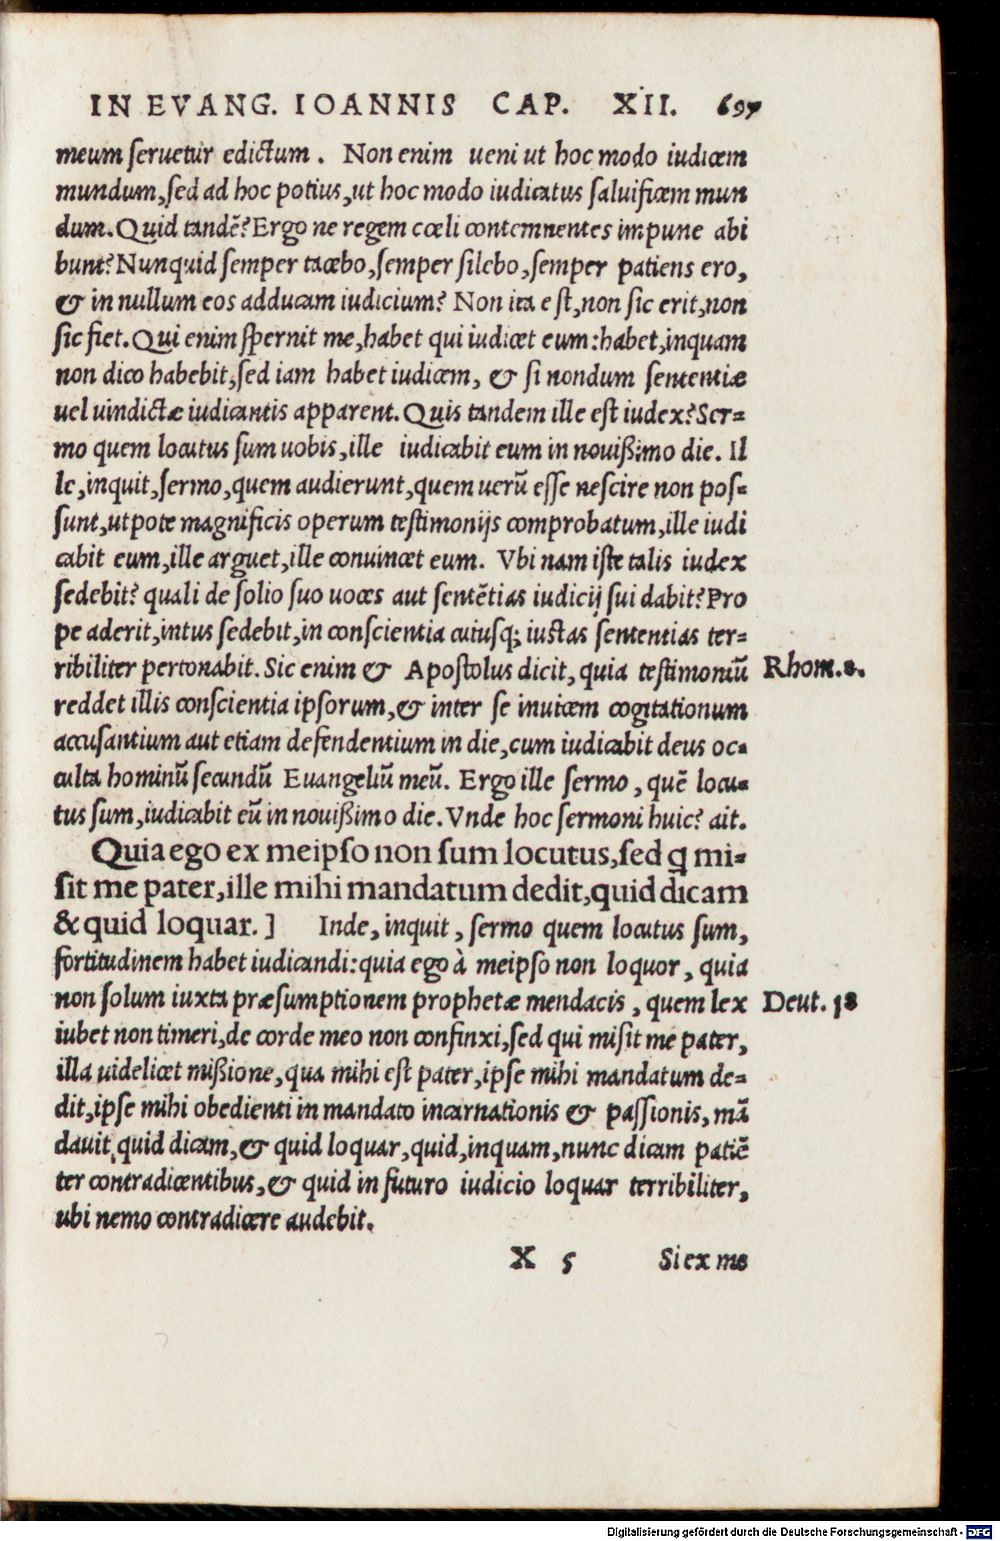 IN EVANG. IOANNIS CAP. XII. 697
meum seruetur edictum. Non enim ueni ut hoc modo iudicem
mundum, sed ad hoc potius, ut hoc modo iudicatus saluificem mun
dum. Quid tandē? Ergo ne regem cœli contemnentes impune abi
bunt? Nunquid semper tacebo, semper silebo, semper patiens ero,
& in nullum eos adducam iudicium? Non ita est, non sic erit, non
sic fiet. Qui enim spernit me, habet qui iudicet eum: habet, inquam
non dico habebit, sed iam habet iudicem, & si nondum sententiæ
uel uindictæ iudicantis apparent. Quis tandem ille est iudex? Ser=
mo quem locutus sum uobis, ille iudicabit eum in nouißimo die. Il
le, inquit, sermo, quem audierunt, quem uerū esse nescire non pos=
sunt, utpote magnificis operum testimonijs comprobatum, ille iudi
cabit eum, ille arguet, ille conuincet eum. Vbi nam iste talis iudex
sedebit? quali de solio suo uoces aut sentētias iudicij sui dabit? Pro
pe aderit, intus sedebit, in conscientia cuiusq; iustas sententias ter=
ribiliter pertonabit. Sic enim & Apostolus dicit, quia testimoniū
Rhom. 2.
reddet illis conscientia ipsorum, & inter se inuicem cogitationum
accusantium aut etiam defendentium in die, cum iudicabit deus oc=
culta hominū secundū Euangeliū meū. Ergo ille sermo, quē locu=
tus sum, iudicabit eū in nouißimo die. Vnde hoc sermoni huic? ait.
Quia ego ex meipso non sum locutus, sed q̄ mi=
sit me pater, ille mihi mandatum dedit, quid dicam
& quid loquar. ] Inde, inquit, sermo quem locutus sum,
fortitudinem habet iudicandi: quia ego à meipso non loquor, quia
non solum iuxta præsumptionem prophetæ mendacis, quem lex
Deut. 18
iubet non timeri, de corde meo non confinxi, sed qui misit me pater,
illa uidelicet mißione, qua mihi est pater, ipse mihi mandatum de=
dit, ipse mihi obedienti in mandato incarnationis & passionis, mā
dauit, quid dicam, & quid loquar, quid, inquam, nunc dicam patiē
ter contradicentibus, & quid in futuro iudicio loquar terribiliter,
ubi nemo contradicere audebit.
X 5 Si ex me
Digitalisierung gefördert durch die Deutsche Forschungsgemeinschaft - DFG